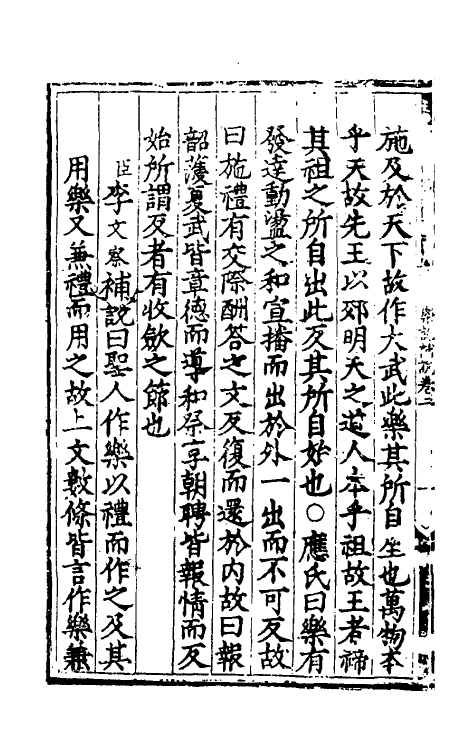 施及於天下故作大武此樂其所自生也萬物本
乎天故先王以郊明天之道人本乎祖故王者禘
其祖之所自出此反其所自始也○應氏曰樂有
發達動盪之和宣播而出於外一出而不可反故
曰施禮有交際酬答之文反復而還於内故曰報
韶濩夏武皆章德而導和祭享朝聘皆報情而反
始所謂反者有收斂之節也
臣李文察補說曰聖人作樂以禮而作之及其
用樂又兼禮而用之故上文數條皆言作樂兼
卷二